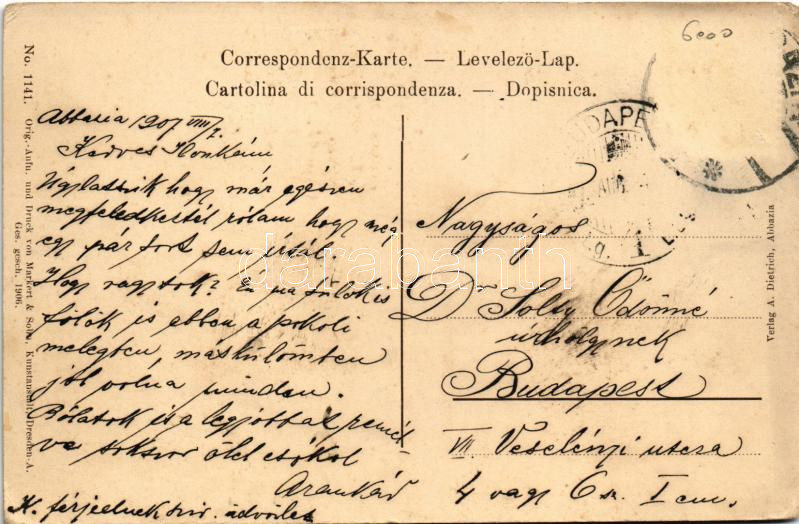 6000
Correspondenz-Karte. — Levelezö-Lap.
Cartolina di corrispondenza. — Dopisnica.
No. 1141. Orig.-Aufn. und Druck von Markert & Sohn, Kunstanstalt, Dresden-A.
Ges. gesch. 1906.
Abbazia 1907 VIII/1.
Kedves Ilonkám
Úgylátszik hogy már egészen
megfeledkeztél rólam hogy még
egy pár sort sem írtál.
Hogy vagytok? Én
ebben a pokoli
melegben, máskülömben
jól volna minden.
Rólatok is a legjobbat remél-
ve sokszor ölel csókol
Arankád
K. férjednek szív. üdvözlet
BUDAPE
1
Nagyságos
Dr Solty Ödönné
úrhölgynek
Budapest
VII Veselényi utcza
4 vagy 6 sz. I em.
Verlag A. Dietrich, Abbazia
darabanth